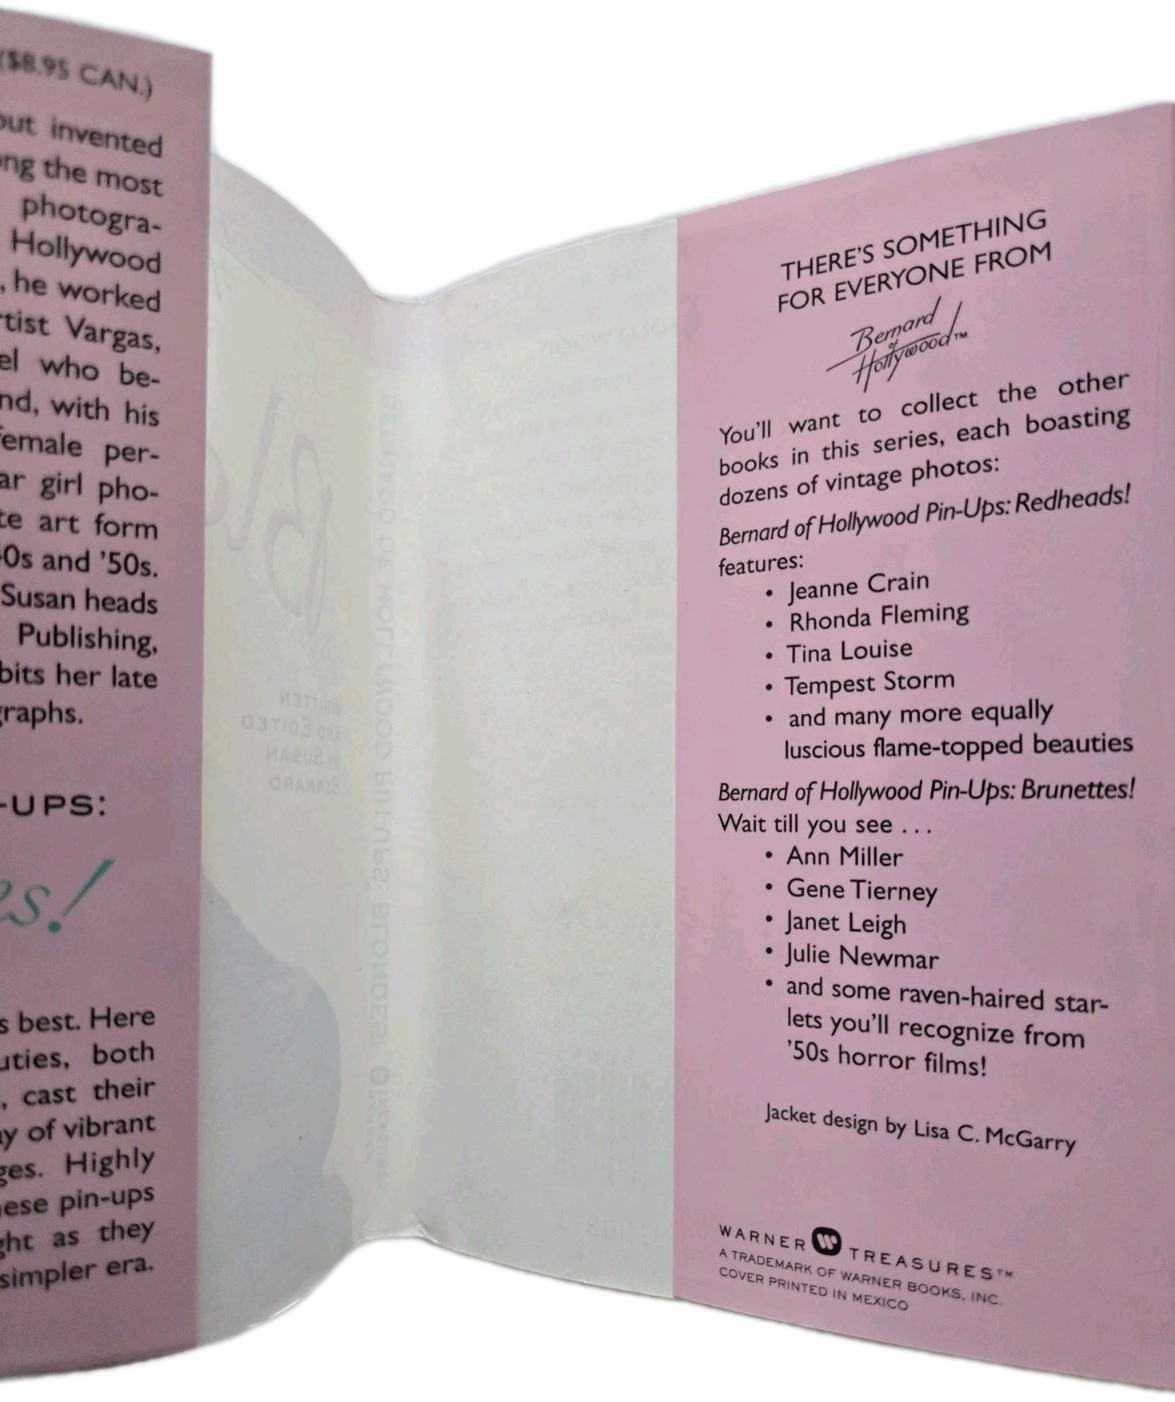 ($8.95 CAN.)
out invented
ng the most
photogra-
Hollywood
, he worked
tist Vargas,
el who be-
nd, with his
emale per-
ar girl pho-
te art form
0s and '50s.
Susan heads
Publishing,
bits her late
graphs.
-UPS:
es!
s best. Here
uties, both
, cast their
y of vibrant
ges. Highly
hese pin-ups
ght as they
simpler era.
WRITTEN
AND EDITED
BY SUSAN
BERNARD
BERNARD OF HOLLYWOOD PIN-UPS: BLONDES!
THERE'S SOMETHING
FOR EVERYONE FROM
Bernard
of
Hollywood™
You'll want to collect the other
books in this series, each boasting
dozens of vintage photos:
Bernard of Hollywood Pin-Ups: Redheads!
features:
• Jeanne Crain
• Rhonda Fleming
• Tina Louise
• Tempest Storm
• and many more equally
luscious flame-topped beauties
Bernard of Hollywood Pin-Ups: Brunettes!
Wait till you see . . .
• Ann Miller
• Gene Tierney
• Janet Leigh
• Julie Newmar
• and some raven-haired star-
lets you'll recognize from
'50s horror films!
Jacket design by Lisa C. McGarry
WARNER TREASURES™
A TRADEMARK OF WARNER BOOKS, INC.
COVER PRINTED IN MEXICO